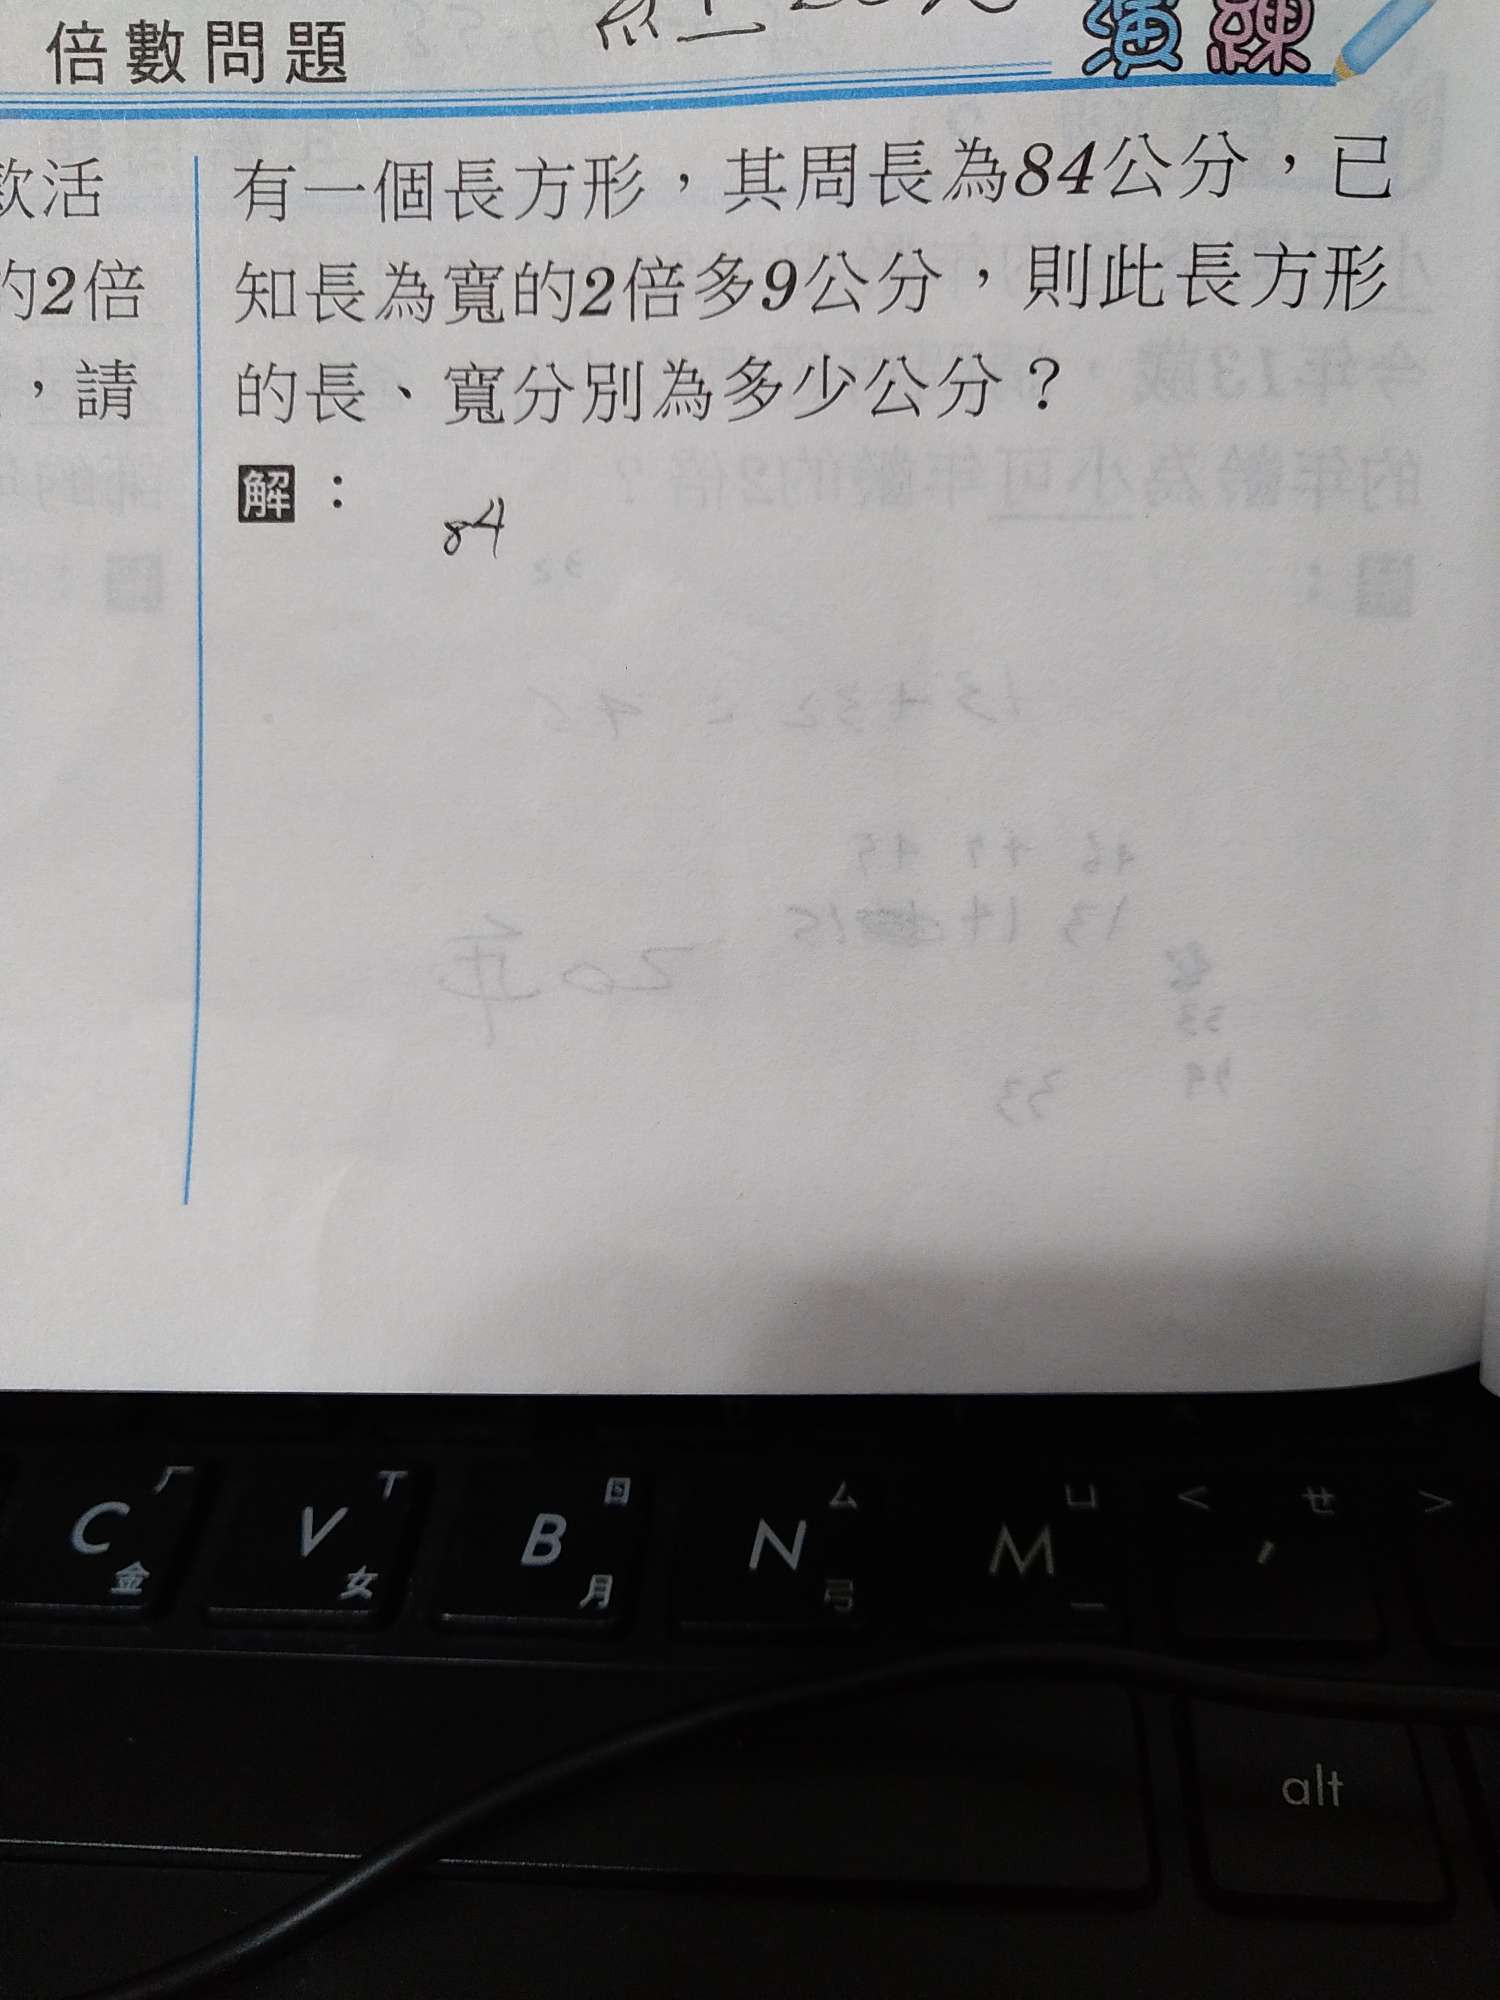 倍數問題
演練
款活
的2倍
，請
有一個長方形，其周長為84公分，已
知長為寬的2倍多9公分，則此長方形
的長、寬分別為多少公分？
解：
84
C ㄏ 金
V ㄒ 女
B ㄖ 月
N ㄙ 弓
M ㄩ 一
< ㄝ ,
>
alt